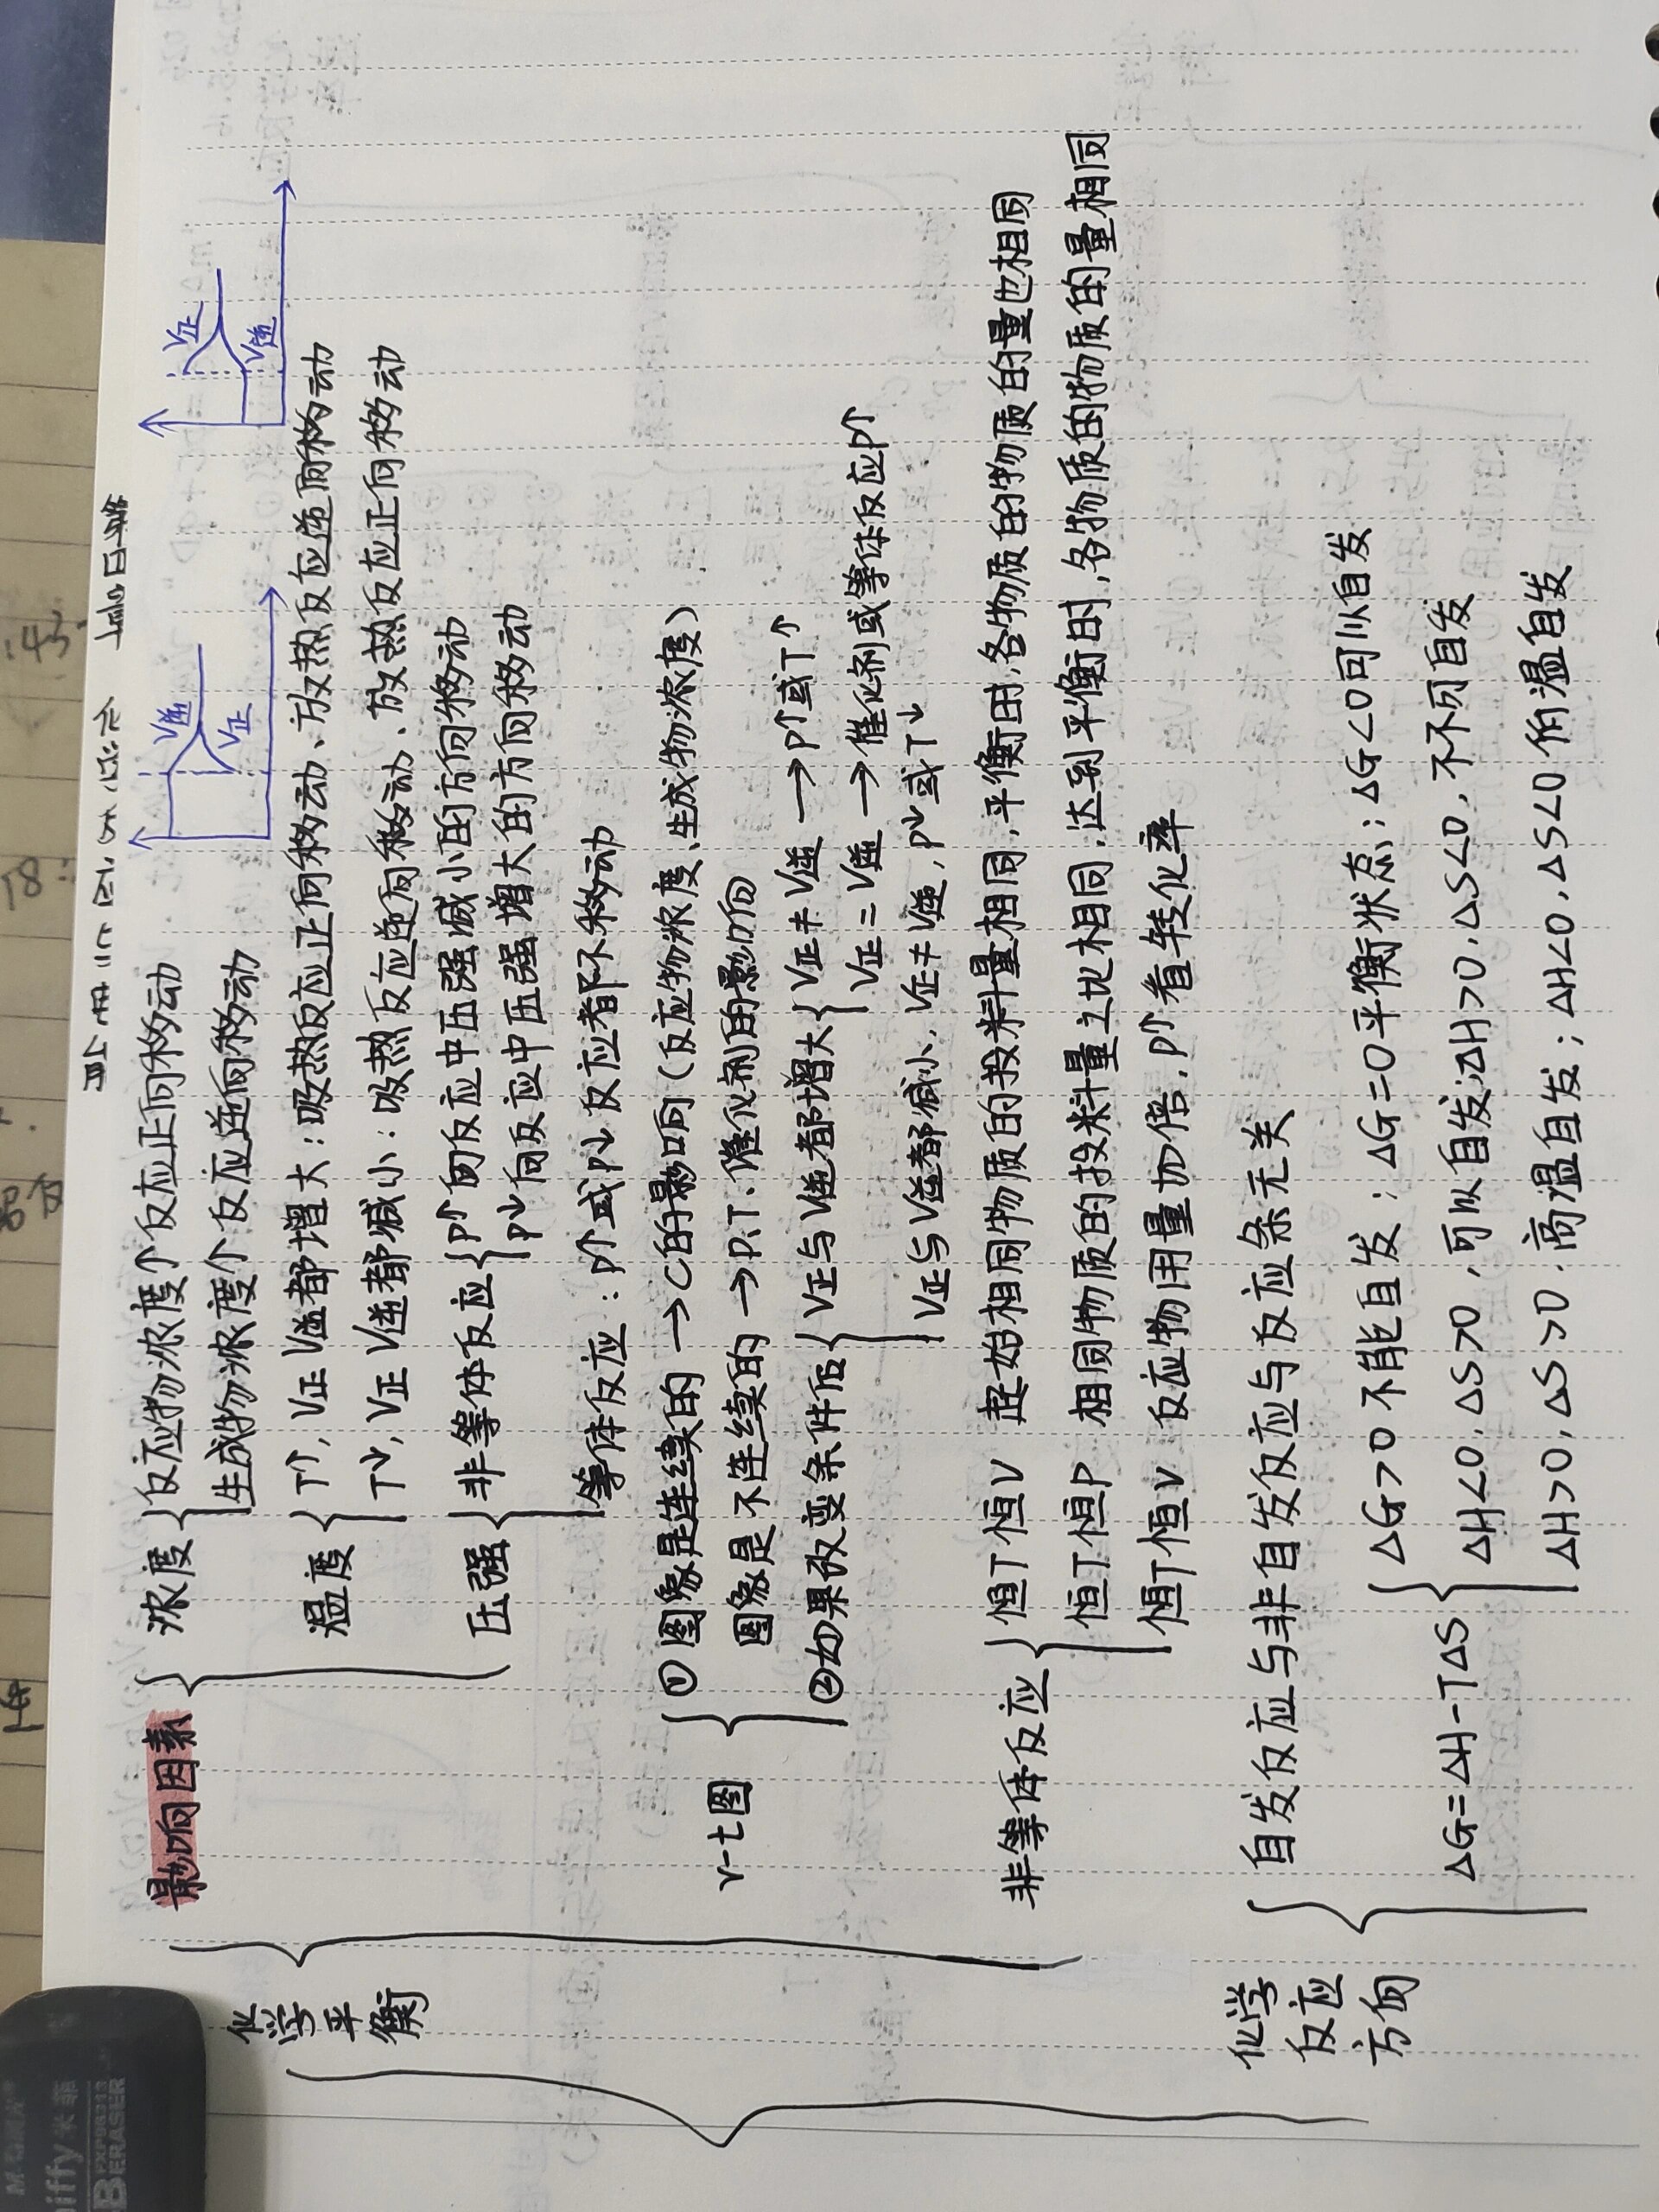 影响因素
浓度
反应物浓度个反应正向移动
生成物浓度个反应逆向移动
V逆
V正
V正
V逆
温度
T↑, V正 V逆都增大:吸热反应正向移动、放热反应逆向移动
T↓, V正 V逆都减小:吸热反应逆向移动、放热反应正向移动
压强
非等体反应
P↑向反应中压强减小的方向移动
P↓向反应中压强增大的方向移动
等体反应:P↑或P↓反应都不移动
化学平衡
v-t图
①图象是连续的→C的影响(反应物浓度、生成物浓度)
图象是不连续的→P.T.催化剂的影响
②如果改变条件后
V正与V逆都增大
V正≠V逆→P↑或T↑
V正=V逆→催化剂或等体反应P↑
V正与V逆都减小,V正≠V逆,P↓或T↓
非等体反应
恒T恒V 起始相同物质的投料量相同,平衡时,各物质的物质的量也相同
恒T恒P 相同物质的投料量之比相同,达到平衡时,各物质的物质的量相同
恒T恒V 反应物用量加倍,P↑看转化率
化学反应方向
自发反应与非自发反应与反应条无关
ΔG=ΔH-TΔS
ΔG>0不能自发;ΔG=0平衡状态;ΔG<0可以自发
ΔH<0,ΔS>0,可以自发;ΔH>0,ΔS<0,不可自发
ΔH>0,ΔS>0,高温自发;ΔH<0,ΔS<0低温自发
M&G
miffy 米菲
FXP96313
ERASER